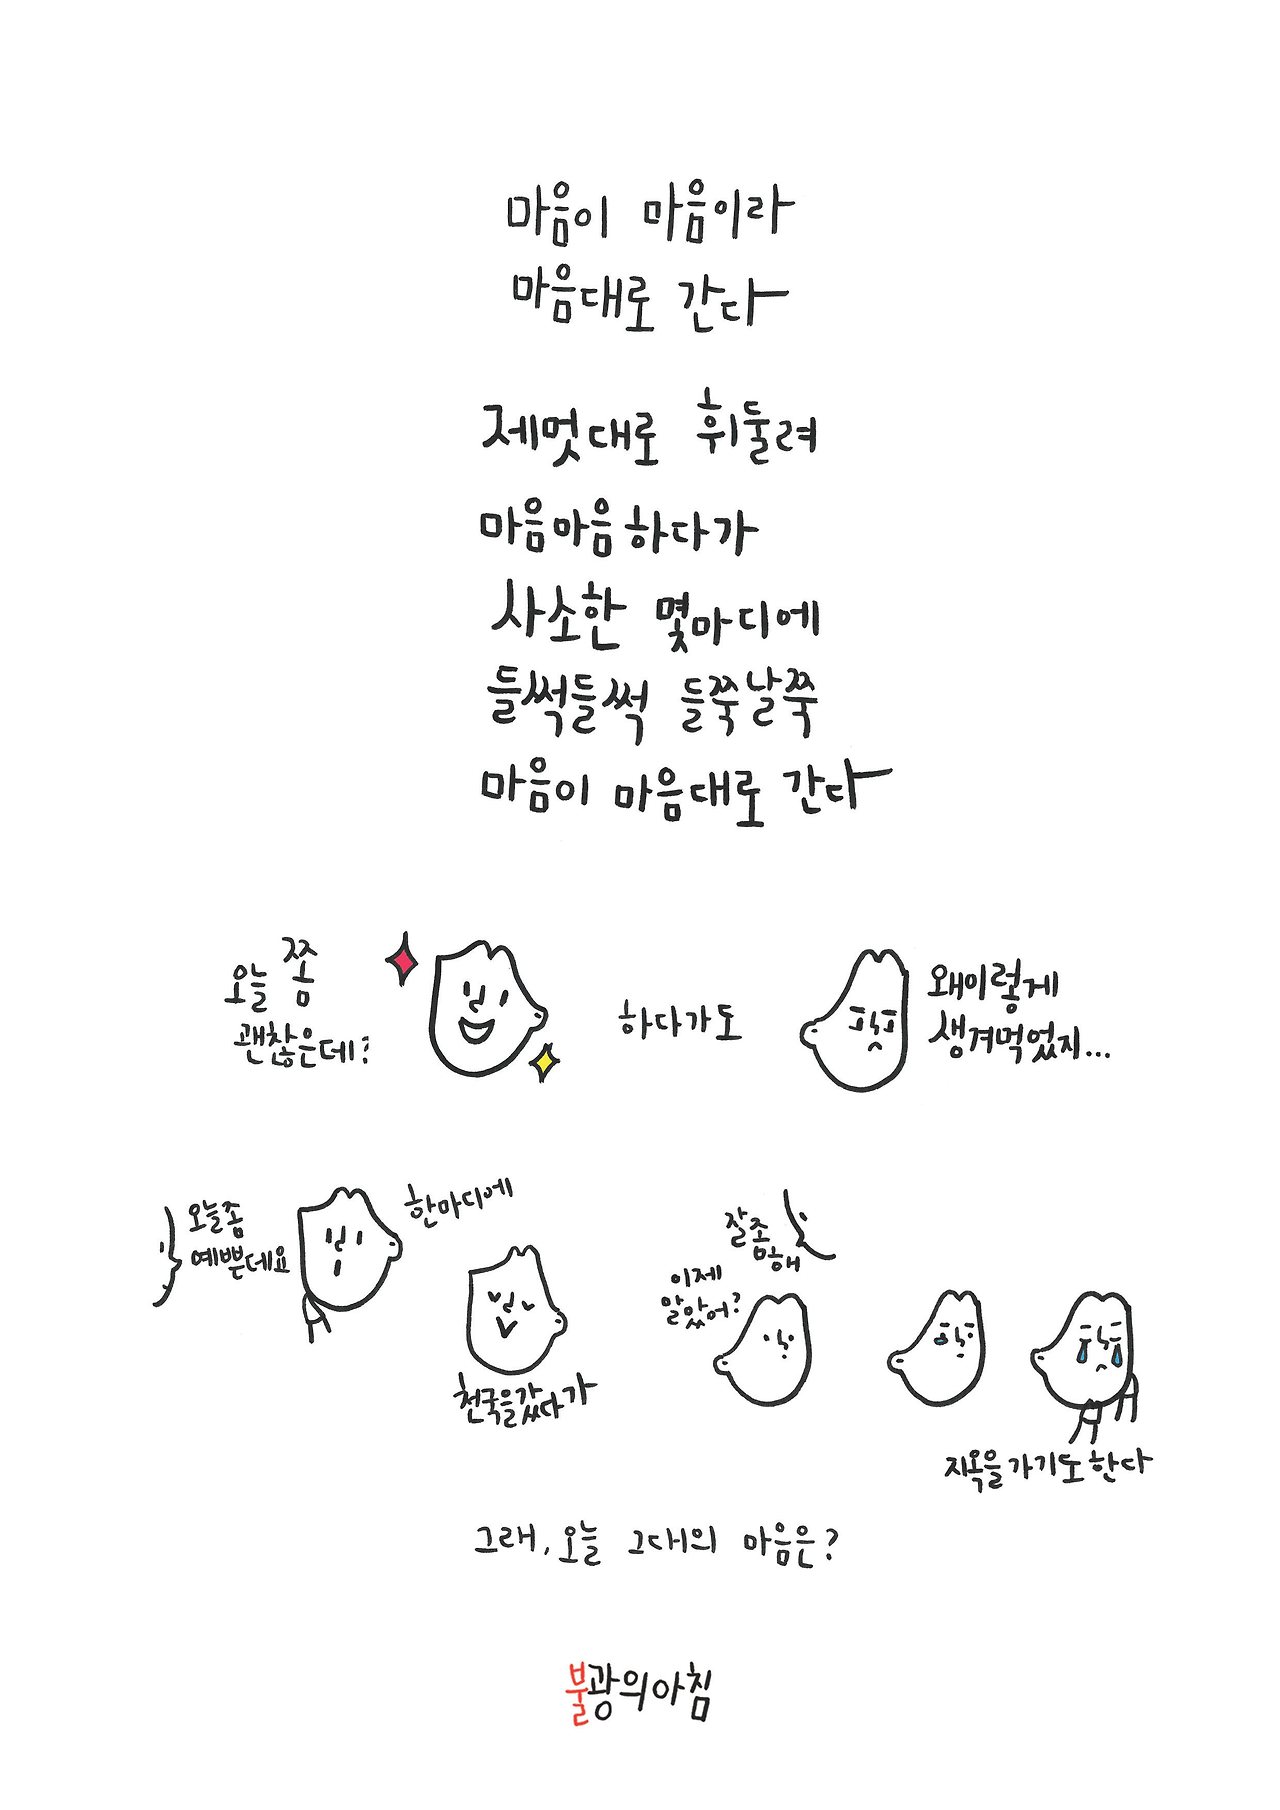 마음이 마음이라
마음대로 간다
제멋대로 휘둘려
마음마음하다가
사소한 몇마디에
들썩들썩 들쭉날쭉
마음이 마음대로 간다
오늘 쫌
괜찮은데?
하다가도
왜이렇게
생겨먹었지...
오늘좀
예쁜데요
한마디에
천국을갔다가
잘좀해
이제
알았어?
지옥을가기도한다
그래, 오늘 그대의 마음은?
불광의아침